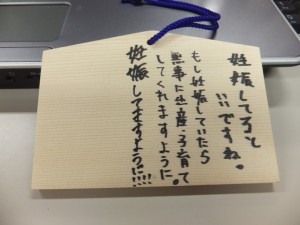 妊娠してると
いいですね。
もし妊娠していたら
無事に出産・子育て
してくれますように。
妊娠してますように!!!!